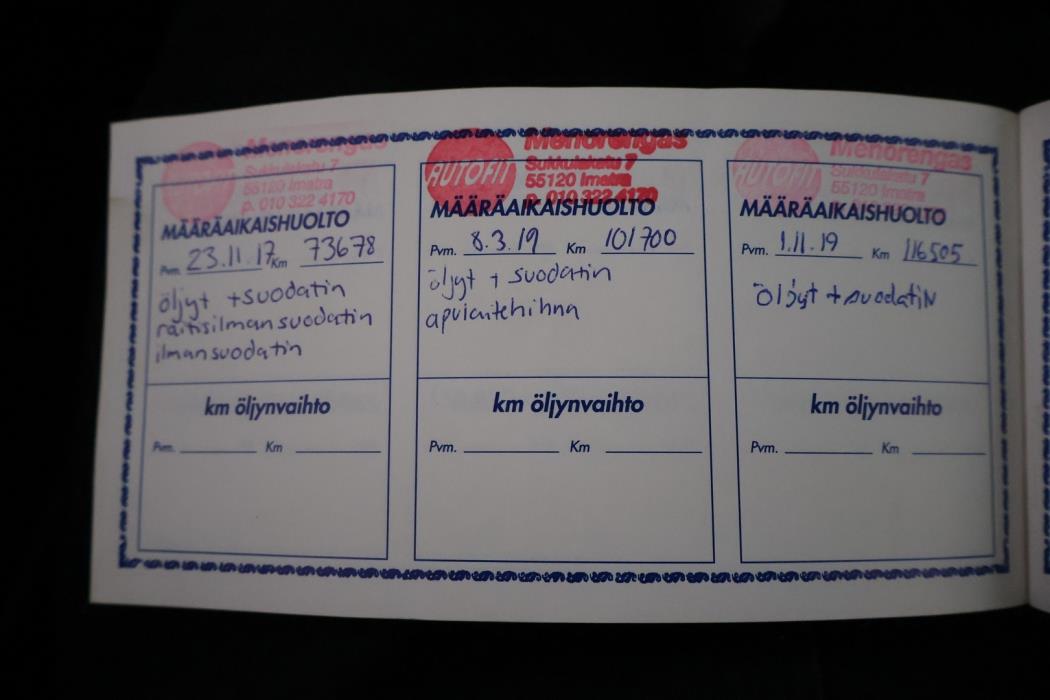 AUTOFIT
Menorengas
Sukkulakatu 7
55120 Imatra
p. 010 322 4170
MÄÄRÄAIKAISHUOLTO
Pvm. 23.11.17 Km 73678
öljyt + suodatin
raitisilmansuodatin
ilmansuodatin
km öljynvaihto
Pvm. Km
AUTOFIT
Menorengas
Sukkulakatu 7
55120 Imatra
p. 010 322 4170
MÄÄRÄAIKAISHUOLTO
Pvm. 8.3.19 Km 101700
öljyt + suodatin
apulaitehihna
km öljynvaihto
Pvm. Km
AUTOFIT
Menorengas
Sukkulakatu 7
55120 Imatra
MÄÄRÄAIKAISHUOLTO
Pvm. 1.11.19 Km 116505
öljyt + suodatin
km öljynvaihto
Pvm. Km